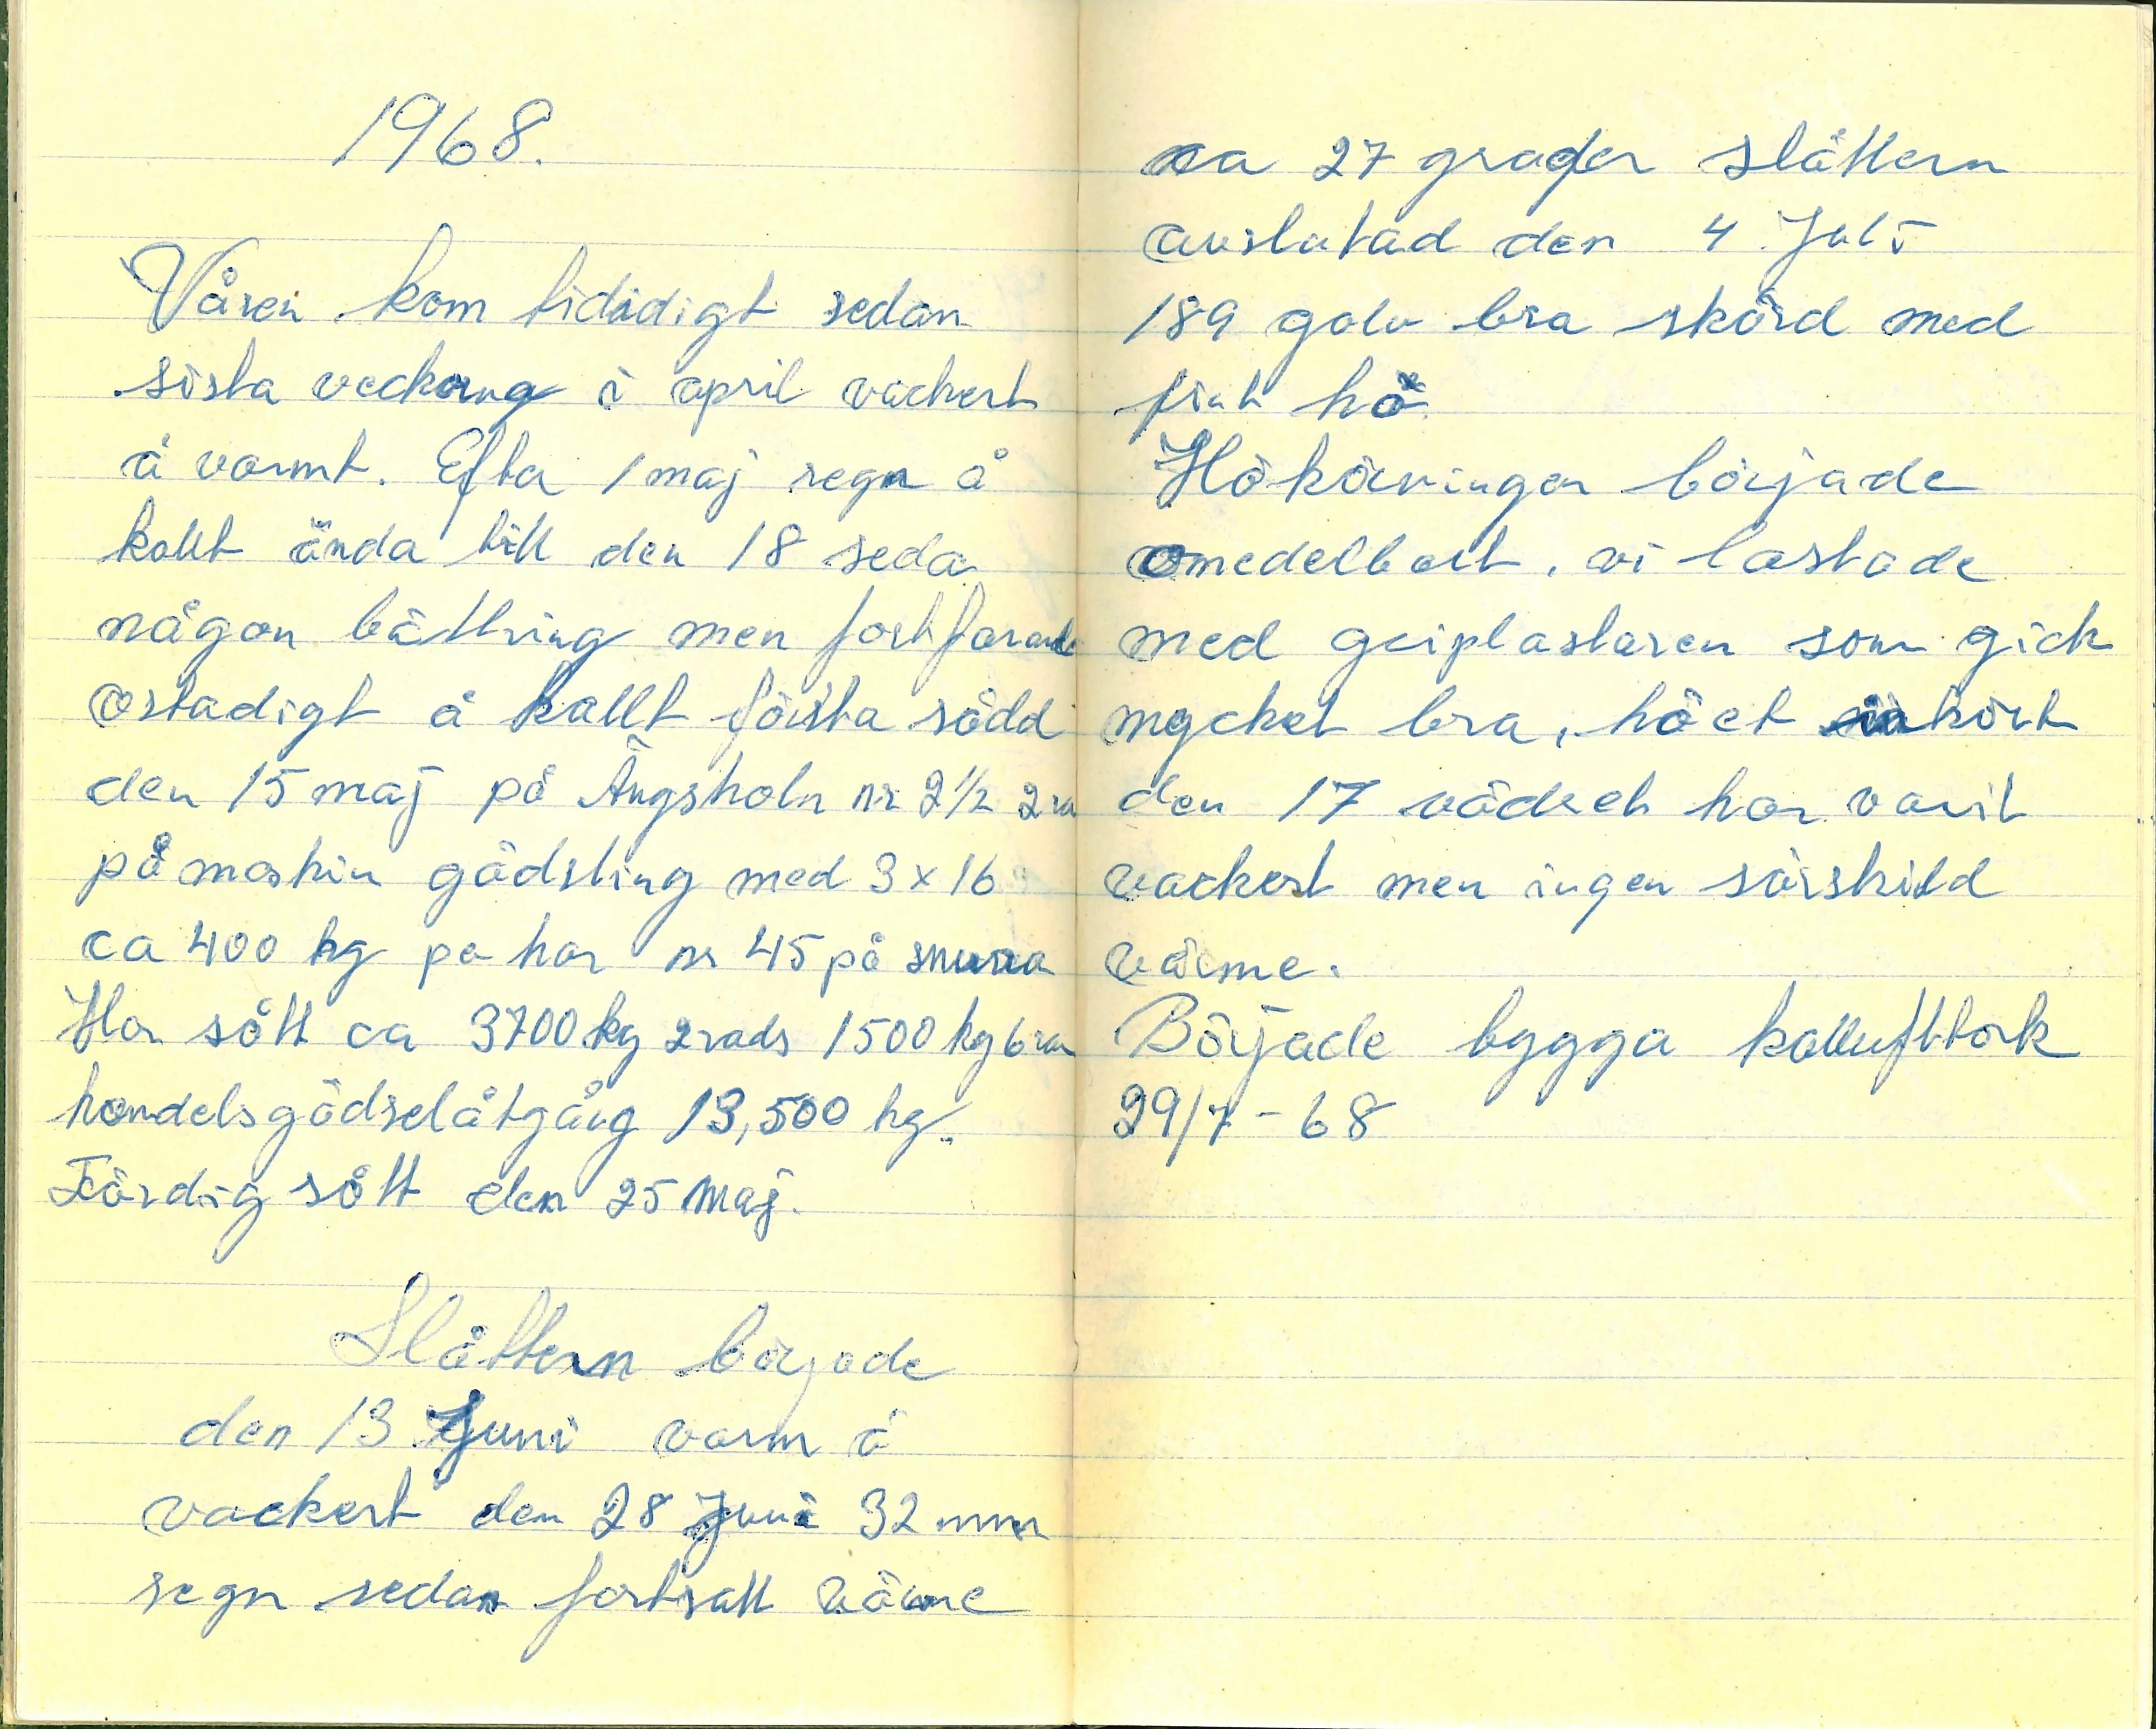 1968.
Våren kom tidadigt sedan
sista veckorna i april vackert
å varmt. Efter 1 maj regn å
kallt ända till den 18 seda
någon bättring men fortfarande
ostadigt å kallt första sådd
den 15 maj på Ängsholn nr 2 1/2 2 ra
på maskin gödsling med 3x16
ca 400 kg pe har nr 45 på snurra
Har sått ca 3700 kg 2 rads 1500 kg 6 ra
handelsgödselåtgång 13,500 kg.
Färdig sått den 25 maj.
Slåttern började
den 13 Juni varm å
vackert den 28 juni 32 mm
regn sedan fortsatt värme
ca 27 grader slåttern
avslutad den 4 Juli
189 golv bra skörd med
fint hö
Hökörningen började
omedelbart. vi lastade
med griplastaren som gick
mycket bra, höet inkört
den 17 vädret har varit
vackert men ingen särskild
värme.
Började bygga kalluftstork
29/7-68